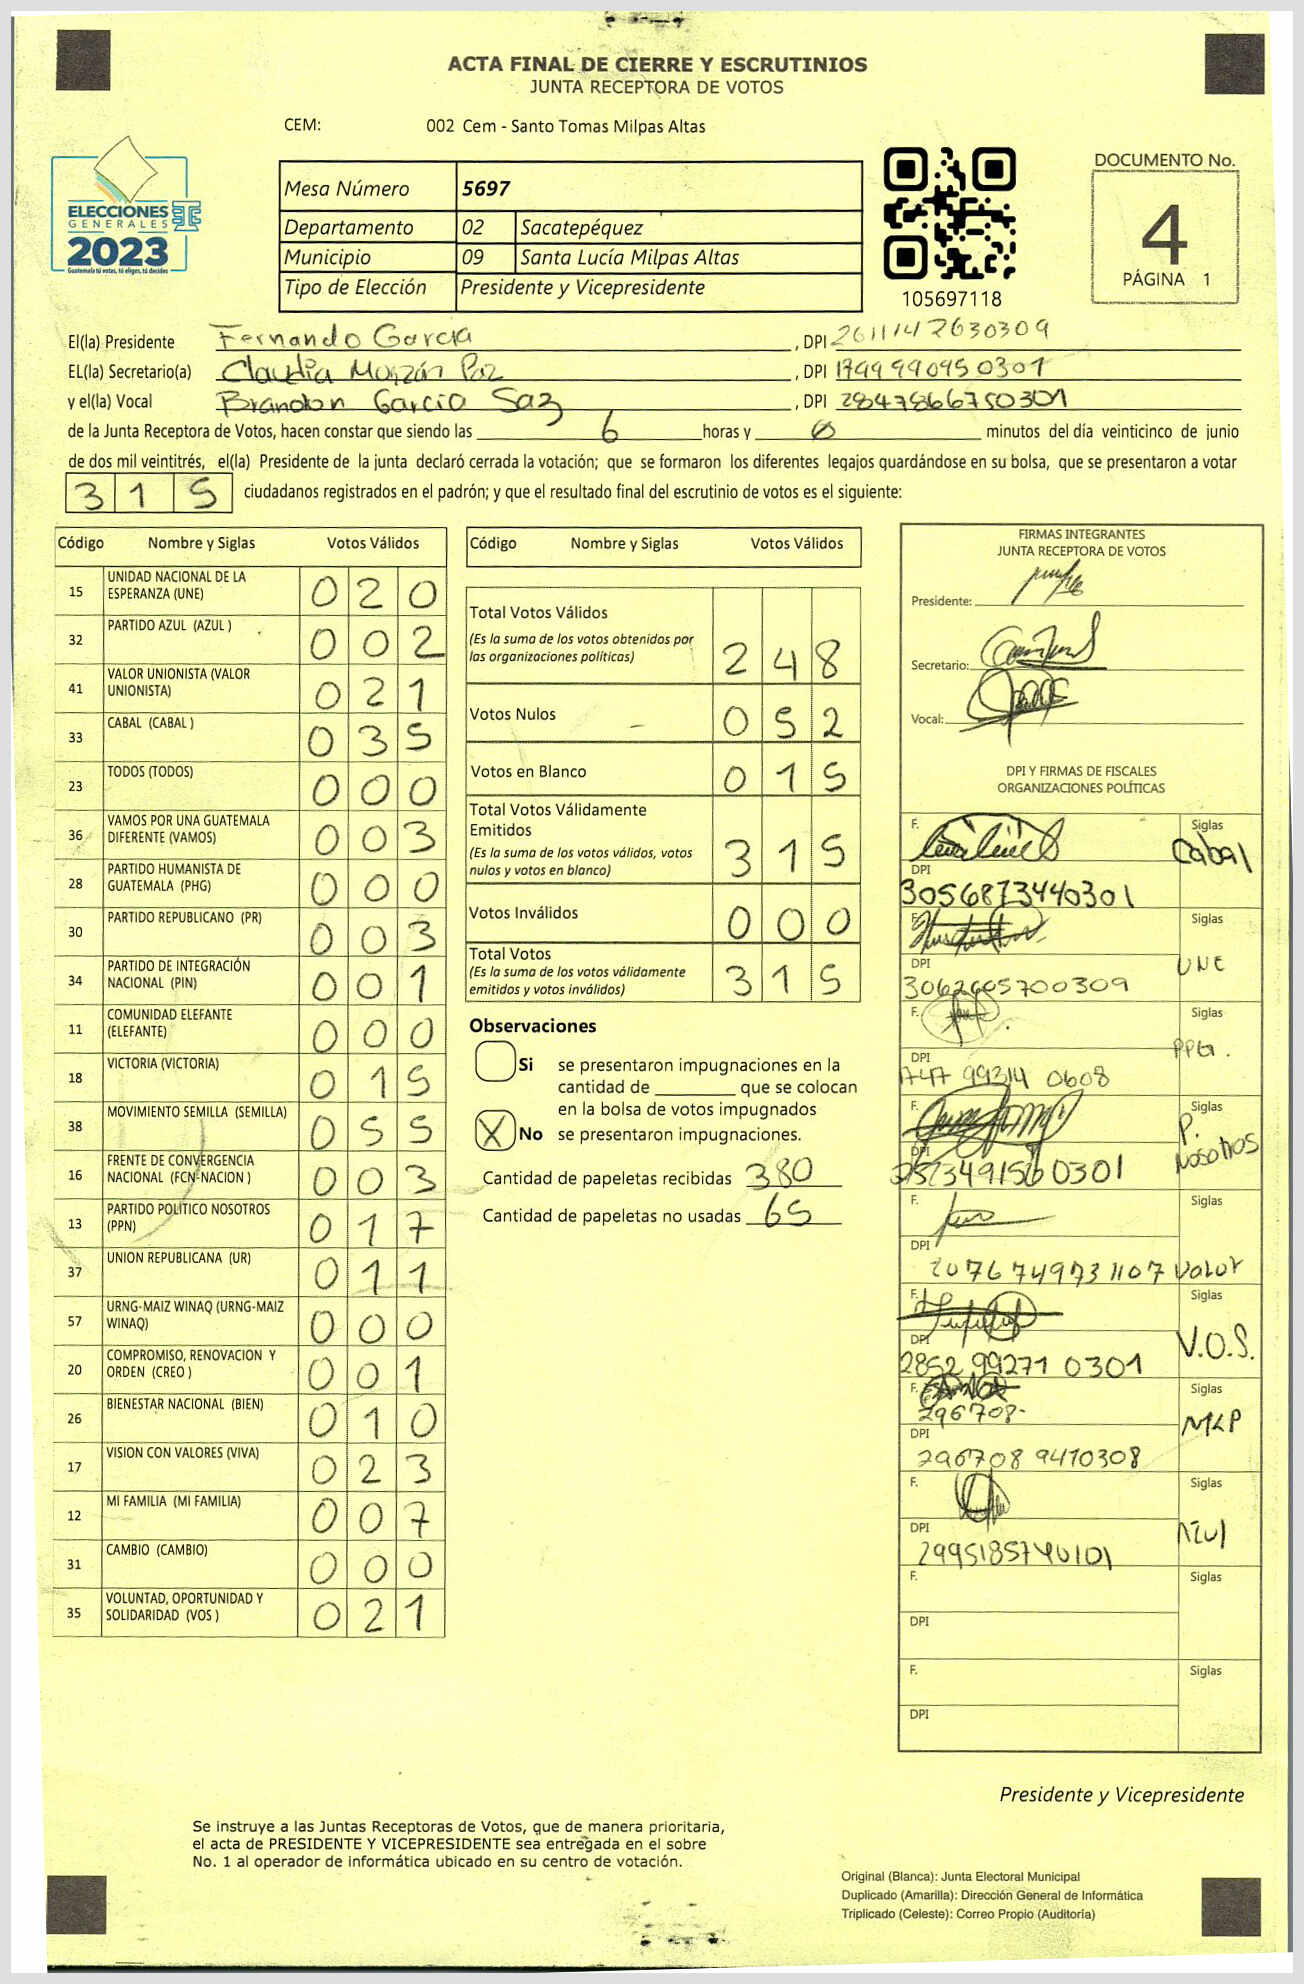 ACTA FINAL DE CIERRE Y ESCRUTINIOS
JUNTA RECEPTORA DE VOTOS
CEM: 002 Cem - Santo Tomas Milpas Altas
ELECCIONES
GENERALES
2023
Guatemala tú votas, tú eliges, tú decides
Mesa Número 5697
Departamento 02 Sacatepéquez
Municipio 09 Santa Lucía Milpas Altas
Tipo de Elección Presidente y Vicepresidente
105697118
DOCUMENTO No.
4
PÁGINA 1
El(la) Presidente Fernando Garcia, DPI 2611142630309
EL(la) Secretario(a) Claudia Monzán Paz, DPI 1799990950301
y el(la) Vocal Brandon Garcia Saz, DPI 2847866750301
de la Junta Receptora de Votos, hacen constar que siendo las 6 horas y 0 minutos del día veinticinco de junio
de dos mil veintitrés, el(la) Presidente de la junta declaró cerrada la votación; que se formaron los diferentes legajos guardándose en su bolsa, que se presentaron a votar
315 ciudadanos registrados en el padrón; y que el resultado final del escrutinio de votos es el siguiente:
Código Nombre y Siglas Votos Válidos
15 UNIDAD NACIONAL DE LA ESPERANZA (UNE) 020
32 PARTIDO AZUL (AZUL ) 002
41 VALOR UNIONISTA (VALOR UNIONISTA) 021
33 CABAL (CABAL ) 035
23 TODOS (TODOS) 000
36 VAMOS POR UNA GUATEMALA DIFERENTE (VAMOS) 003
28 PARTIDO HUMANISTA DE GUATEMALA (PHG) 000
30 PARTIDO REPUBLICANO (PR) 003
34 PARTIDO DE INTEGRACIÓN NACIONAL (PIN) 001
11 COMUNIDAD ELEFANTE (ELEFANTE) 000
18 VICTORIA (VICTORIA) 015
38 MOVIMIENTO SEMILLA (SEMILLA) 055
16 FRENTE DE CONVERGENCIA NACIONAL (FCN-NACION ) 003
13 PARTIDO POLÍTICO NOSOTROS (PPN) 017
37 UNION REPUBLICANA (UR) 011
57 URNG-MAIZ WINAQ (URNG-MAIZ WINAQ) 000
20 COMPROMISO, RENOVACION Y ORDEN (CREO ) 001
26 BIENESTAR NACIONAL (BIEN) 010
17 VISION CON VALORES (VIVA) 023
12 MI FAMILIA (MI FAMILIA) 007
31 CAMBIO (CAMBIO) 000
35 VOLUNTAD, OPORTUNIDAD Y SOLIDARIDAD (VOS ) 021
Código Nombre y Siglas Votos Válidos
Total Votos Válidos
(Es la suma de los votos obtenidos por
las organizaciones políticas) 248
Votos Nulos 052
Votos en Blanco 015
Total Votos Válidamente
Emitidos
(Es la suma de los votos válidos, votos
nulos y votos en blanco) 315
Votos Inválidos 000
Total Votos
(Es la suma de los votos válidamente
emitidos y votos inválidos) 315
Observaciones
Si se presentaron impugnaciones en la
cantidad de ________ que se colocan
en la bolsa de votos impugnados
X No se presentaron impugnaciones.
Cantidad de papeletas recibidas 380
Cantidad de papeletas no usadas 65
FIRMAS INTEGRANTES
JUNTA RECEPTORA DE VOTOS
Presidente:
Secretario:
Vocal:
DPI Y FIRMAS DE FISCALES
ORGANIZACIONES POLÍTICAS
F. Siglas Cabal
DPI 3056873440301
F. Siglas UNE
DPI 3062605700309
F. Siglas PPG.
DPI 1747 99314 0608
F. Siglas P. Nosotros
DPI 0301
F. Siglas Valor
DPI 2076749731107
F. Siglas V.O.S.
DPI 2852 99271 0301
F. 296708- Siglas MLP
DPI 296708 9410308
F. Siglas Azul
DPI 2995185740101
F. Siglas
DPI
F. Siglas
DPI
Presidente y Vicepresidente
Se instruye a las Juntas Receptoras de Votos, que de manera prioritaria,
el acta de PRESIDENTE Y VICEPRESIDENTE sea entregada en el sobre
No. 1 al operador de informática ubicado en su centro de votación.
Original (Blanca): Junta Electoral Municipal
Duplicado (Amarilla): Dirección General de Informática
Triplicado (Celeste): Correo Propio (Auditoría)